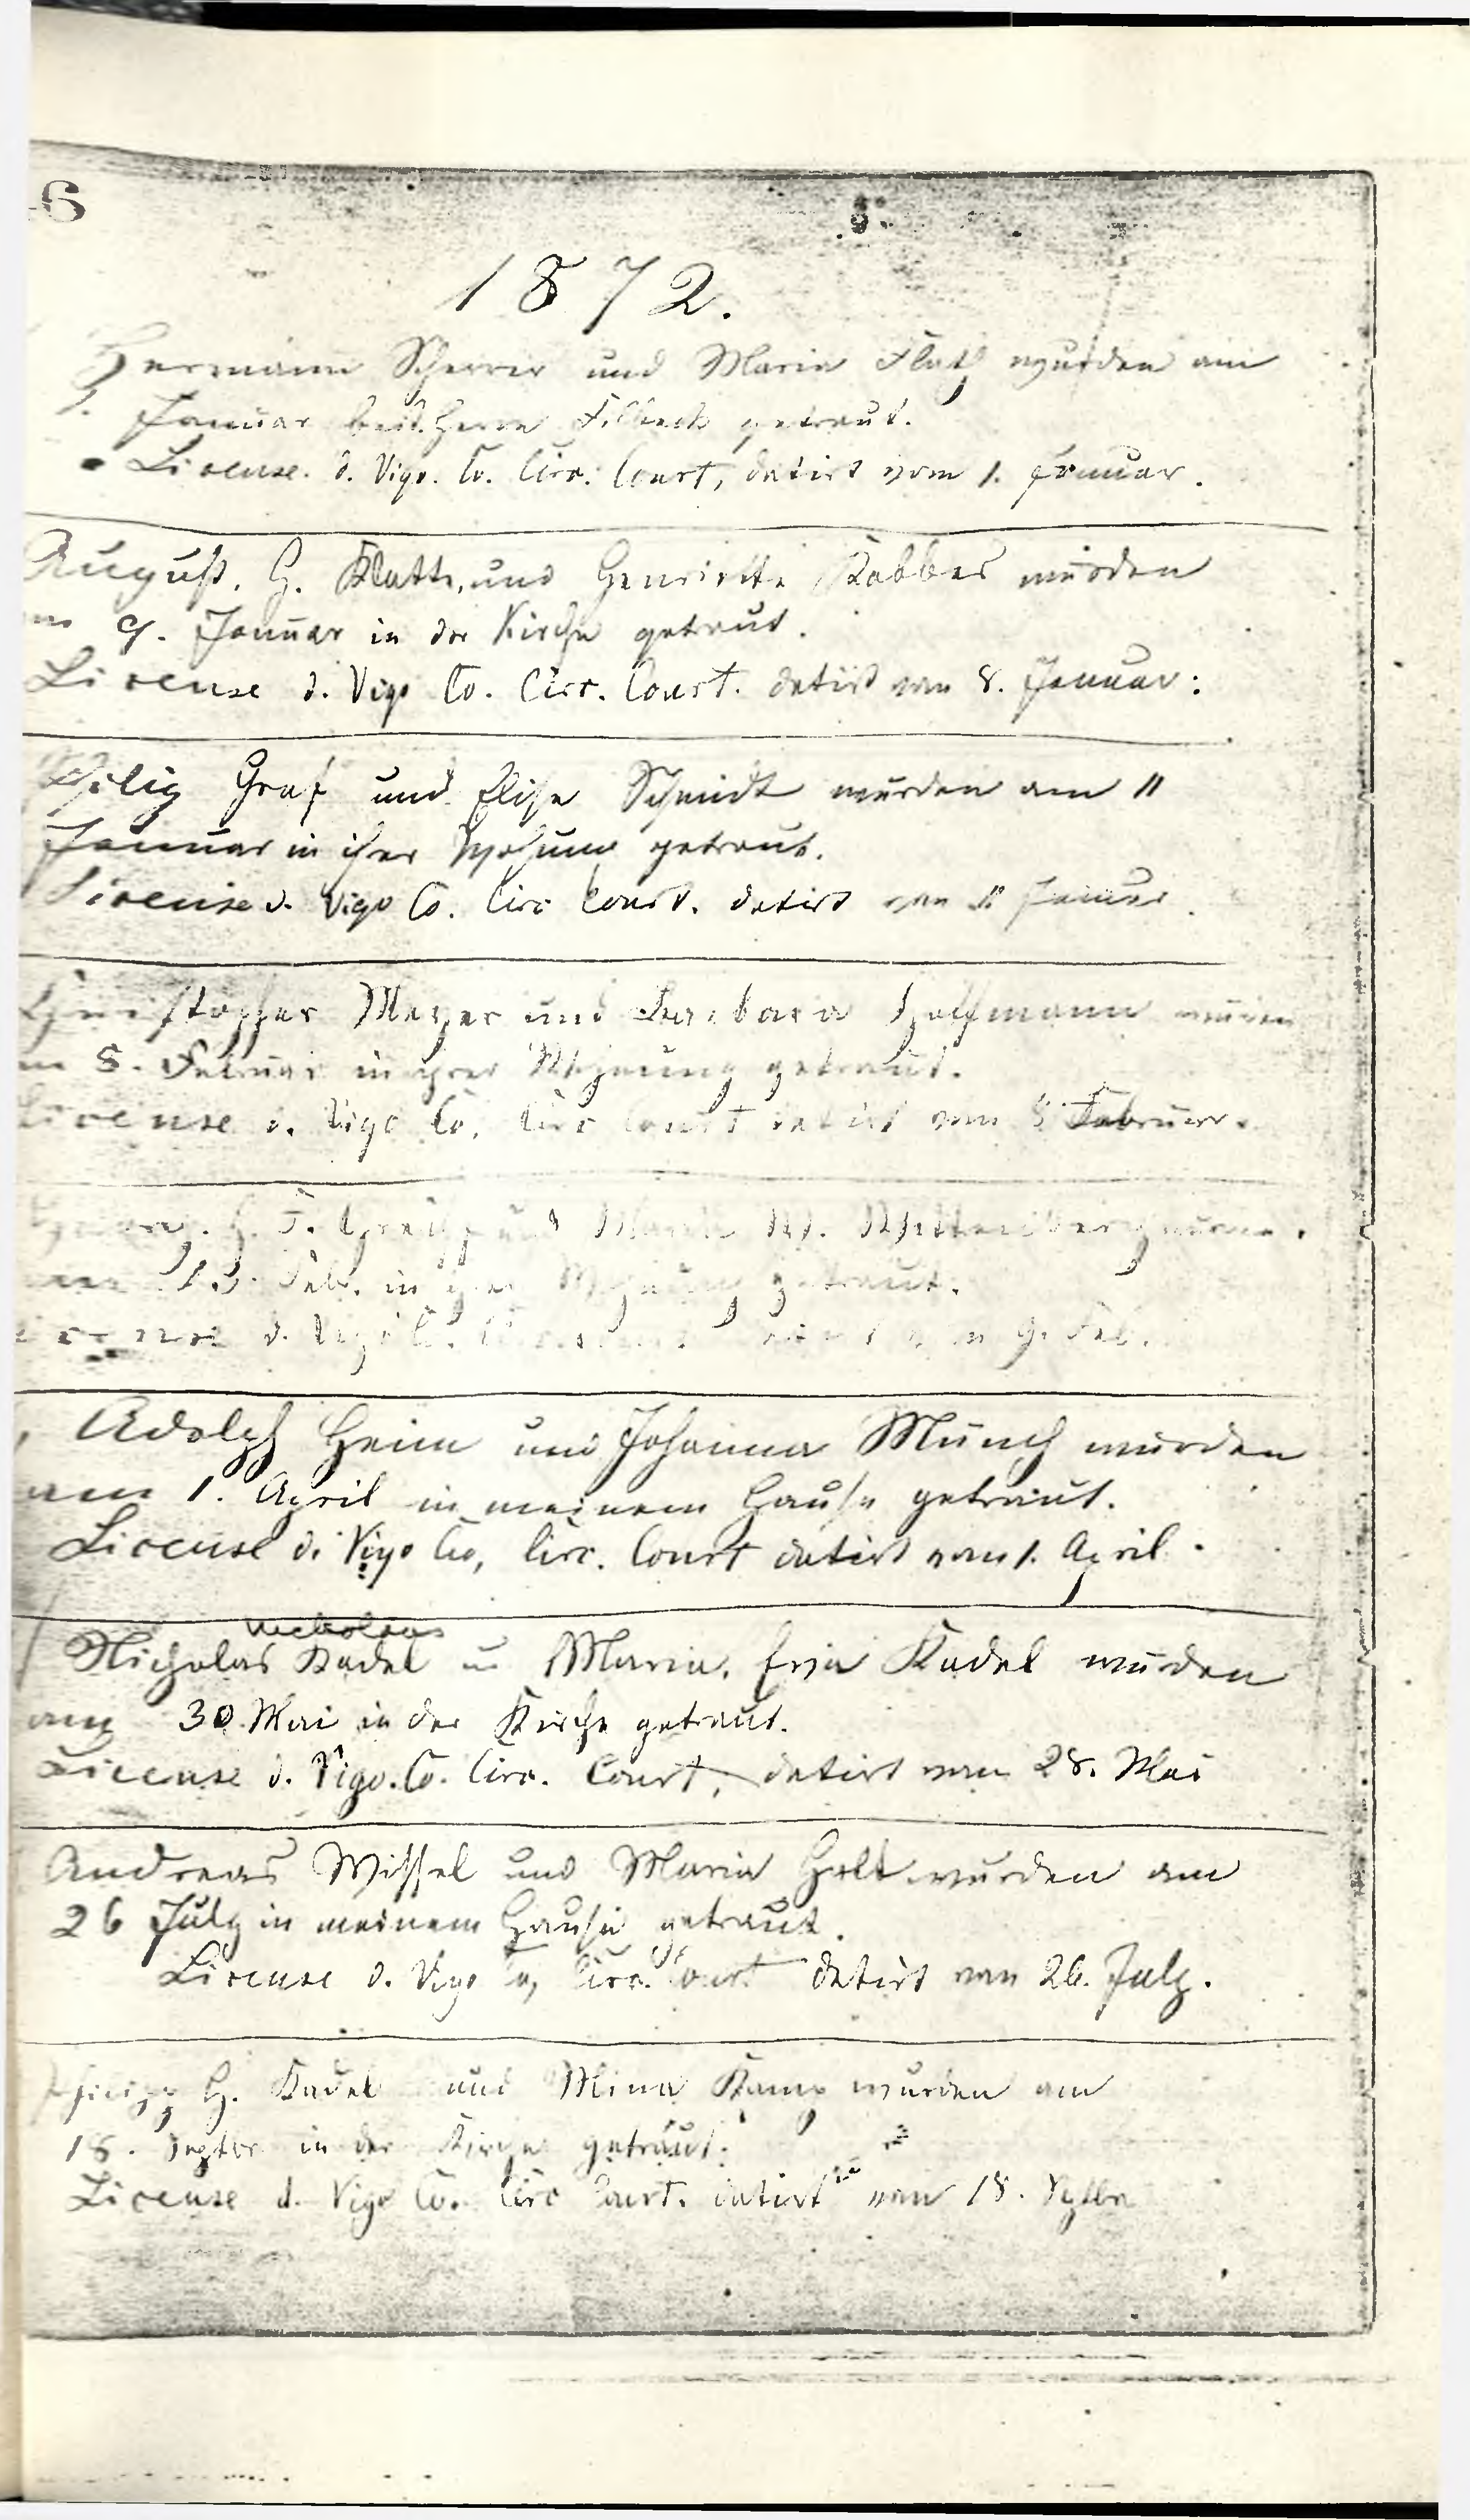 6
1872.
Hermann Scherrer und Maria Flath wurden am
1. Januar bei Herrn Filbeck getraut.
License. d. Vigo. Co. Circ. Court, datirt vom 1. Januar.
August. H. Klatte, und Henriette Kabbes wurden
9. Januar in der Kirche getraut.
License d. Vigo Co. Circ. Court. datirt vom 8. Januar:
Philip Graf und Elise Schmidt wurden am 11
Januar in ihrer Wohnung getraut.
License d. Vigo Co. Circ Court. datirt vom 11 Januar.
Christopher Meyer und Barbara Hoffmann wurden
8. Februar in ihrer Wohnung getraut.
License d. Vigo Co. Circ Court datirt vom 8 Februar.
Georg. H. F. und Maria W.
am 13. Feb. in ihrer Wohnung getraut.
License d. Vigo Co. vom 9. Feb.
Adolph Heim und Johanna Münch wurden
am 1. April in meinem Hause getraut.
License d. Vigo Co, Circ. Court datirt vom 1. April.
Nickolaus
Nicholas Kadel u Maria. Eva Kadel wurden
am 30. Mai in der Kirche getraut.
License d. Vigo. Co. Circ. Court, datirt vom 28. Mai
Andreas Wissel und Maria Holt wurden am
26 July in meinem Hause getraut.
License d. Vigo Co, Circ. Court datirt vom 26. July.
Philipp H. Kadel und Mina Kamp wurden am
18. Septbr in der Kirche getraut.
License d. Vigo Co. Circ Court. datirt vom 18. Septbr